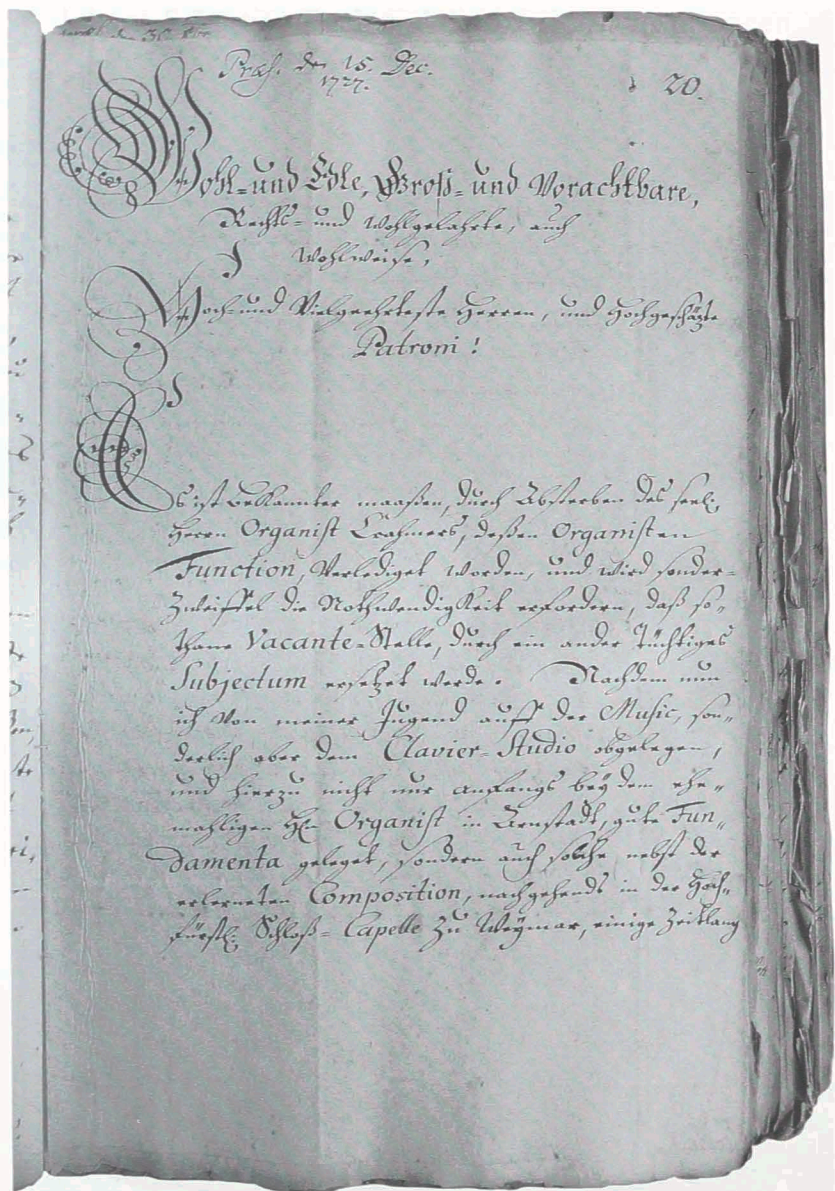 Præs. den 15. Dec.
1727.
20.
Wohl-und Edle, Groß-und Vorachtbare,
Rechts-und Wohlgelahrte, auch
Wohlweise,
Hoch-und Vielgeehrteste Herren, und Hochgeschäzte
Patroni!
Es ist bekannter maaßen, durch Absterben des seel.
Herrn Organist Crahmers, deßen Organisten
Function, verlediget worden, und wird sonder-
Zweiffel die Nothwendigkeit erfordern, daß so-
thane Vacante-Stelle, durch ein ander tüchtiges
Subjectum ersetzet werde. Nachdem nun
ich von meiner Jugend auff der Music, son-
derlich aber dem Clavier-Studio obgelegen,
und hierzu nicht nur anfangs bey dem ehe-
mahligen Hn Organist in Arnstadt, gute Fun-
damenta geleget, sondern auch solche nebst der
erlerneten Composition, nachgehends in der Hoch-
fürstl. Schloß-Capelle zu Weymar, einige Zeitlang